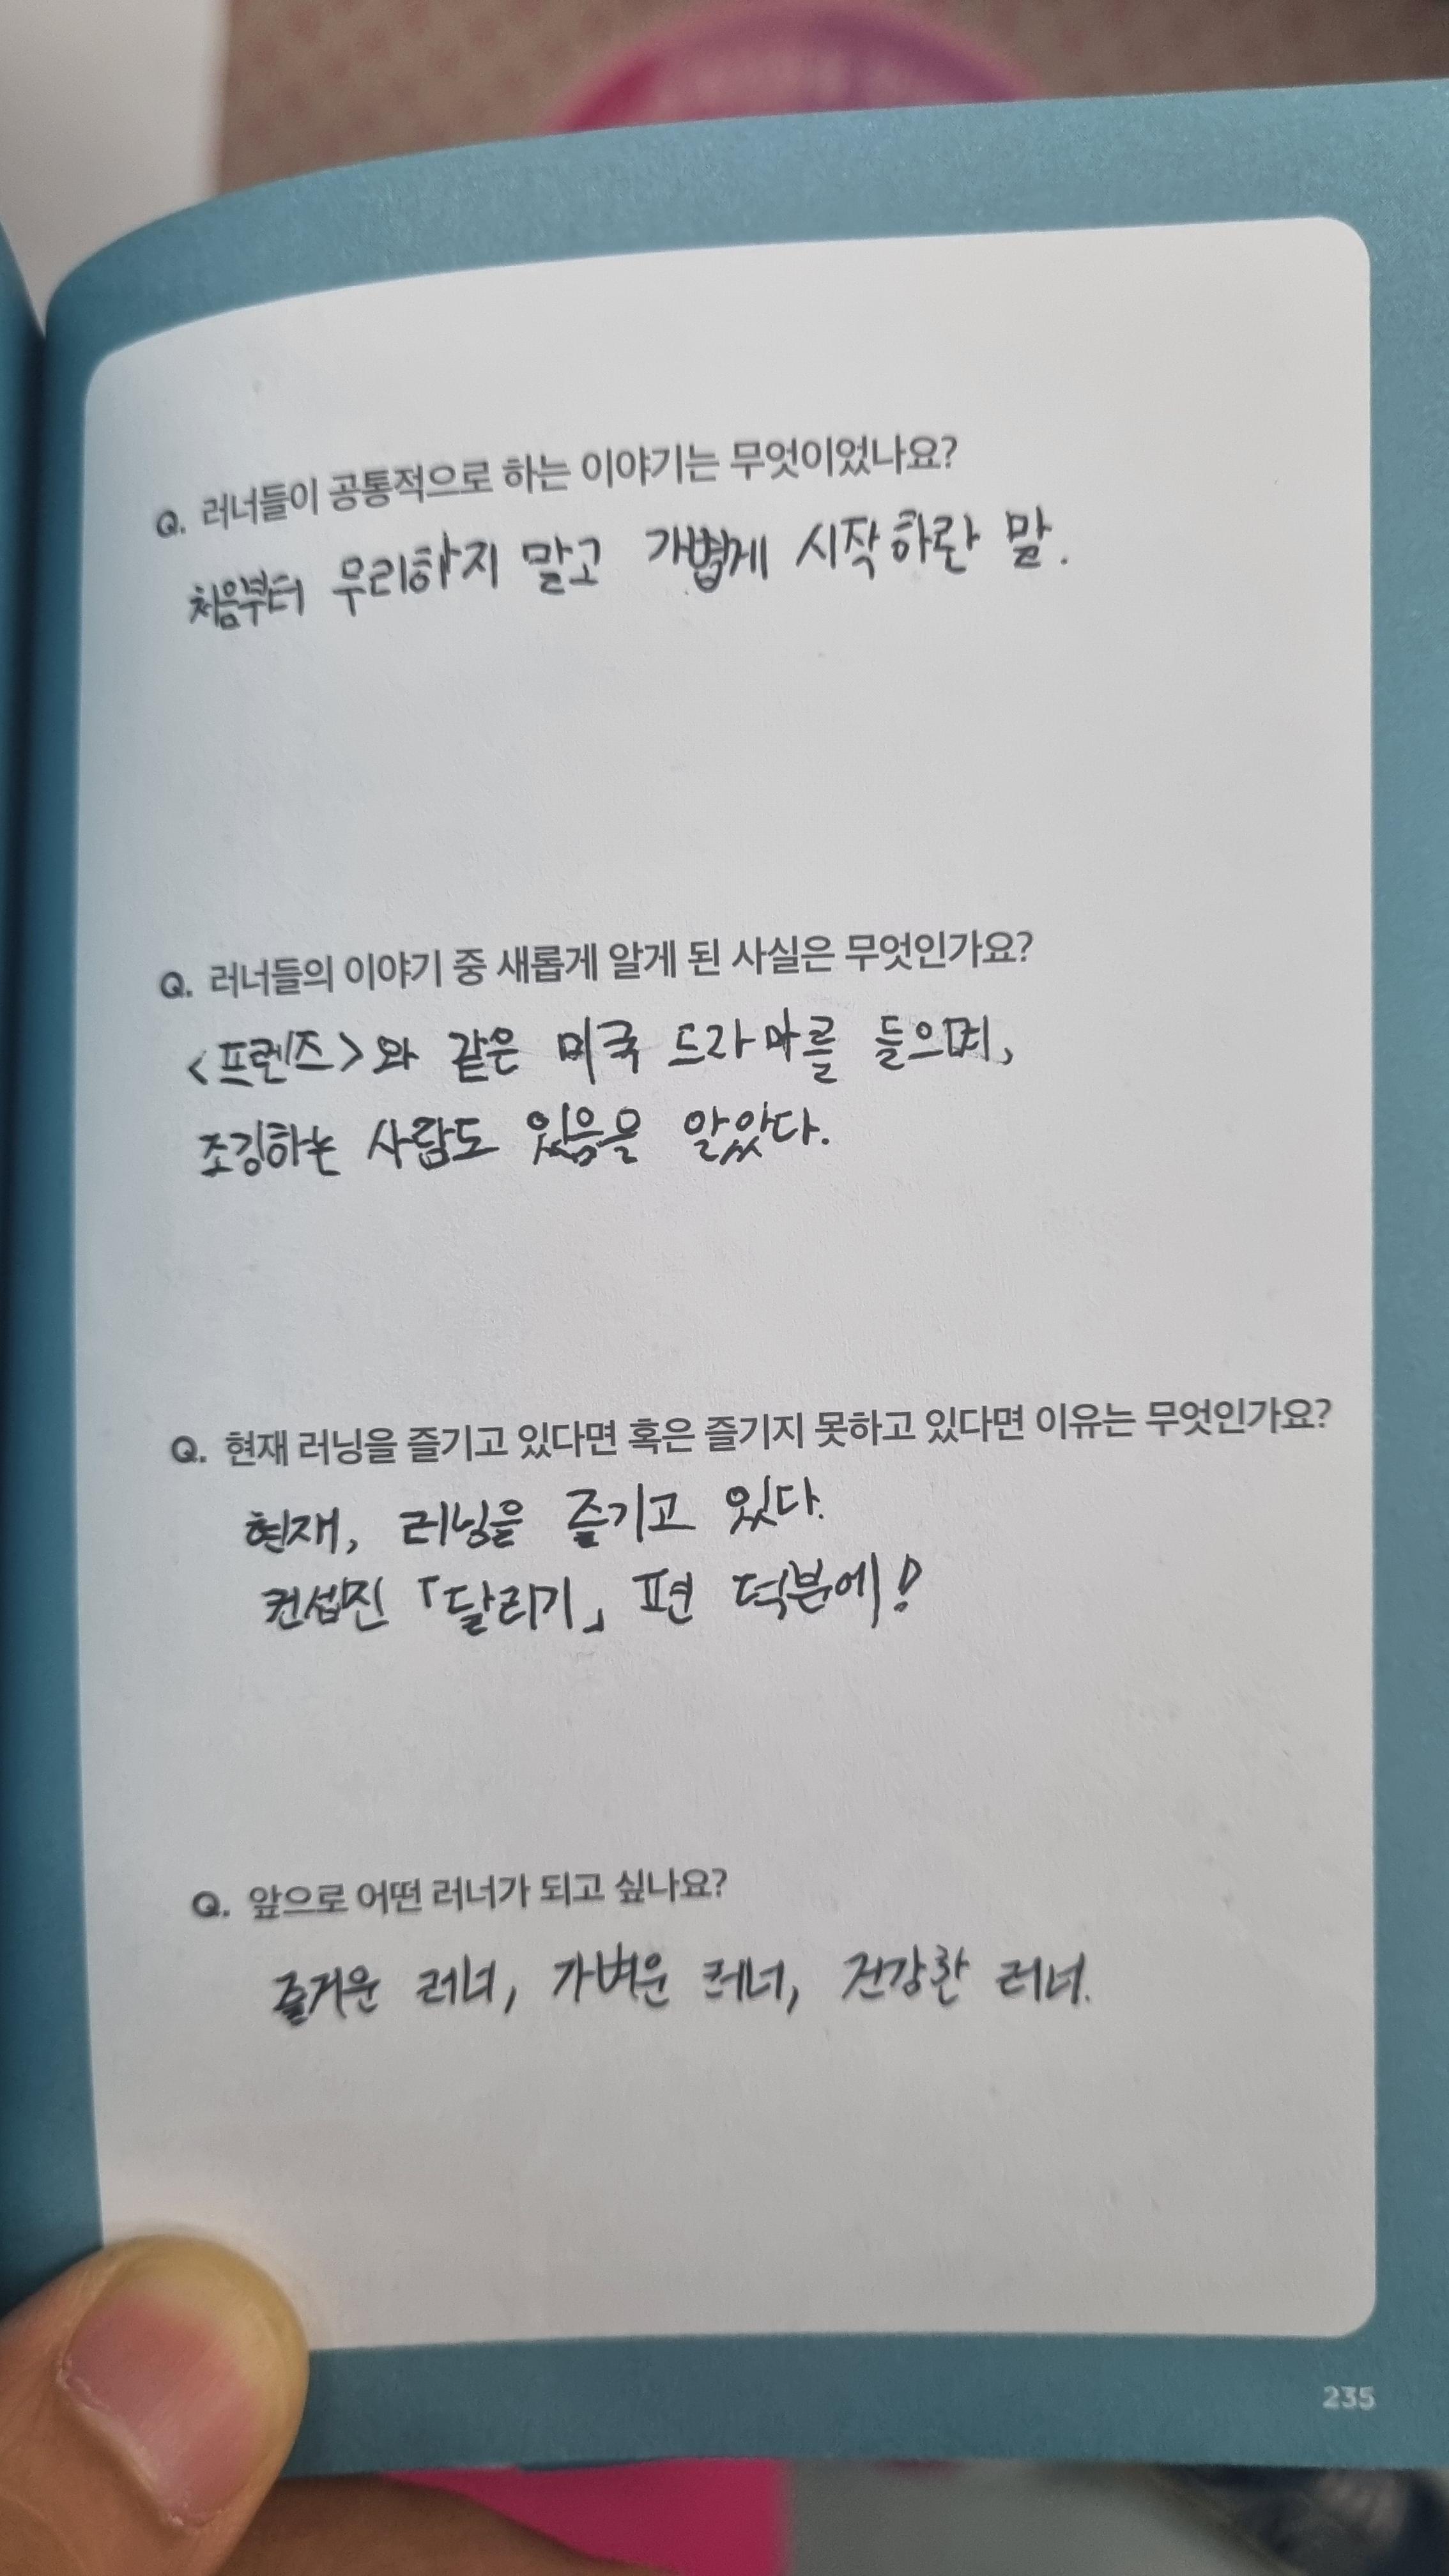 Q. 러너들이 공통적으로 하는 이야기는 무엇이었나요?
처음부터 무리하지 말고 가볍게 시작하란 말.
Q. 러너들의 이야기 중 새롭게 알게 된 사실은 무엇인가요?
<프렌즈>와 같은 미국 드라마를 들으며,
조깅하는 사람도 있음을 알았다.
Q. 현재 러닝을 즐기고 있다면 혹은 즐기지 못하고 있다면 이유는 무엇인가요?
현재, 러닝을 즐기고 있다.
컨셉진 「달리기」 편 덕분에!
Q. 앞으로 어떤 러너가 되고 싶나요?
즐거운 러너, 가벼운 러너, 건강한 러너.
235